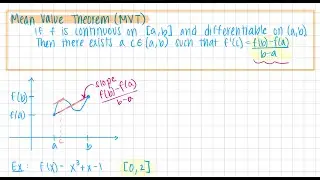 Mean Value Theorem (MVT)
If f is continuous on [a,b] and differentiable on (a,b)
Then there exists a c∈(a,b) such that f'(c) = f(b)-f(a)
b-a
slope
f(b)-f(a)
b-a
f(b)
f(a)
a c b
Ex: f(x) = x³+x-1 [0,2]